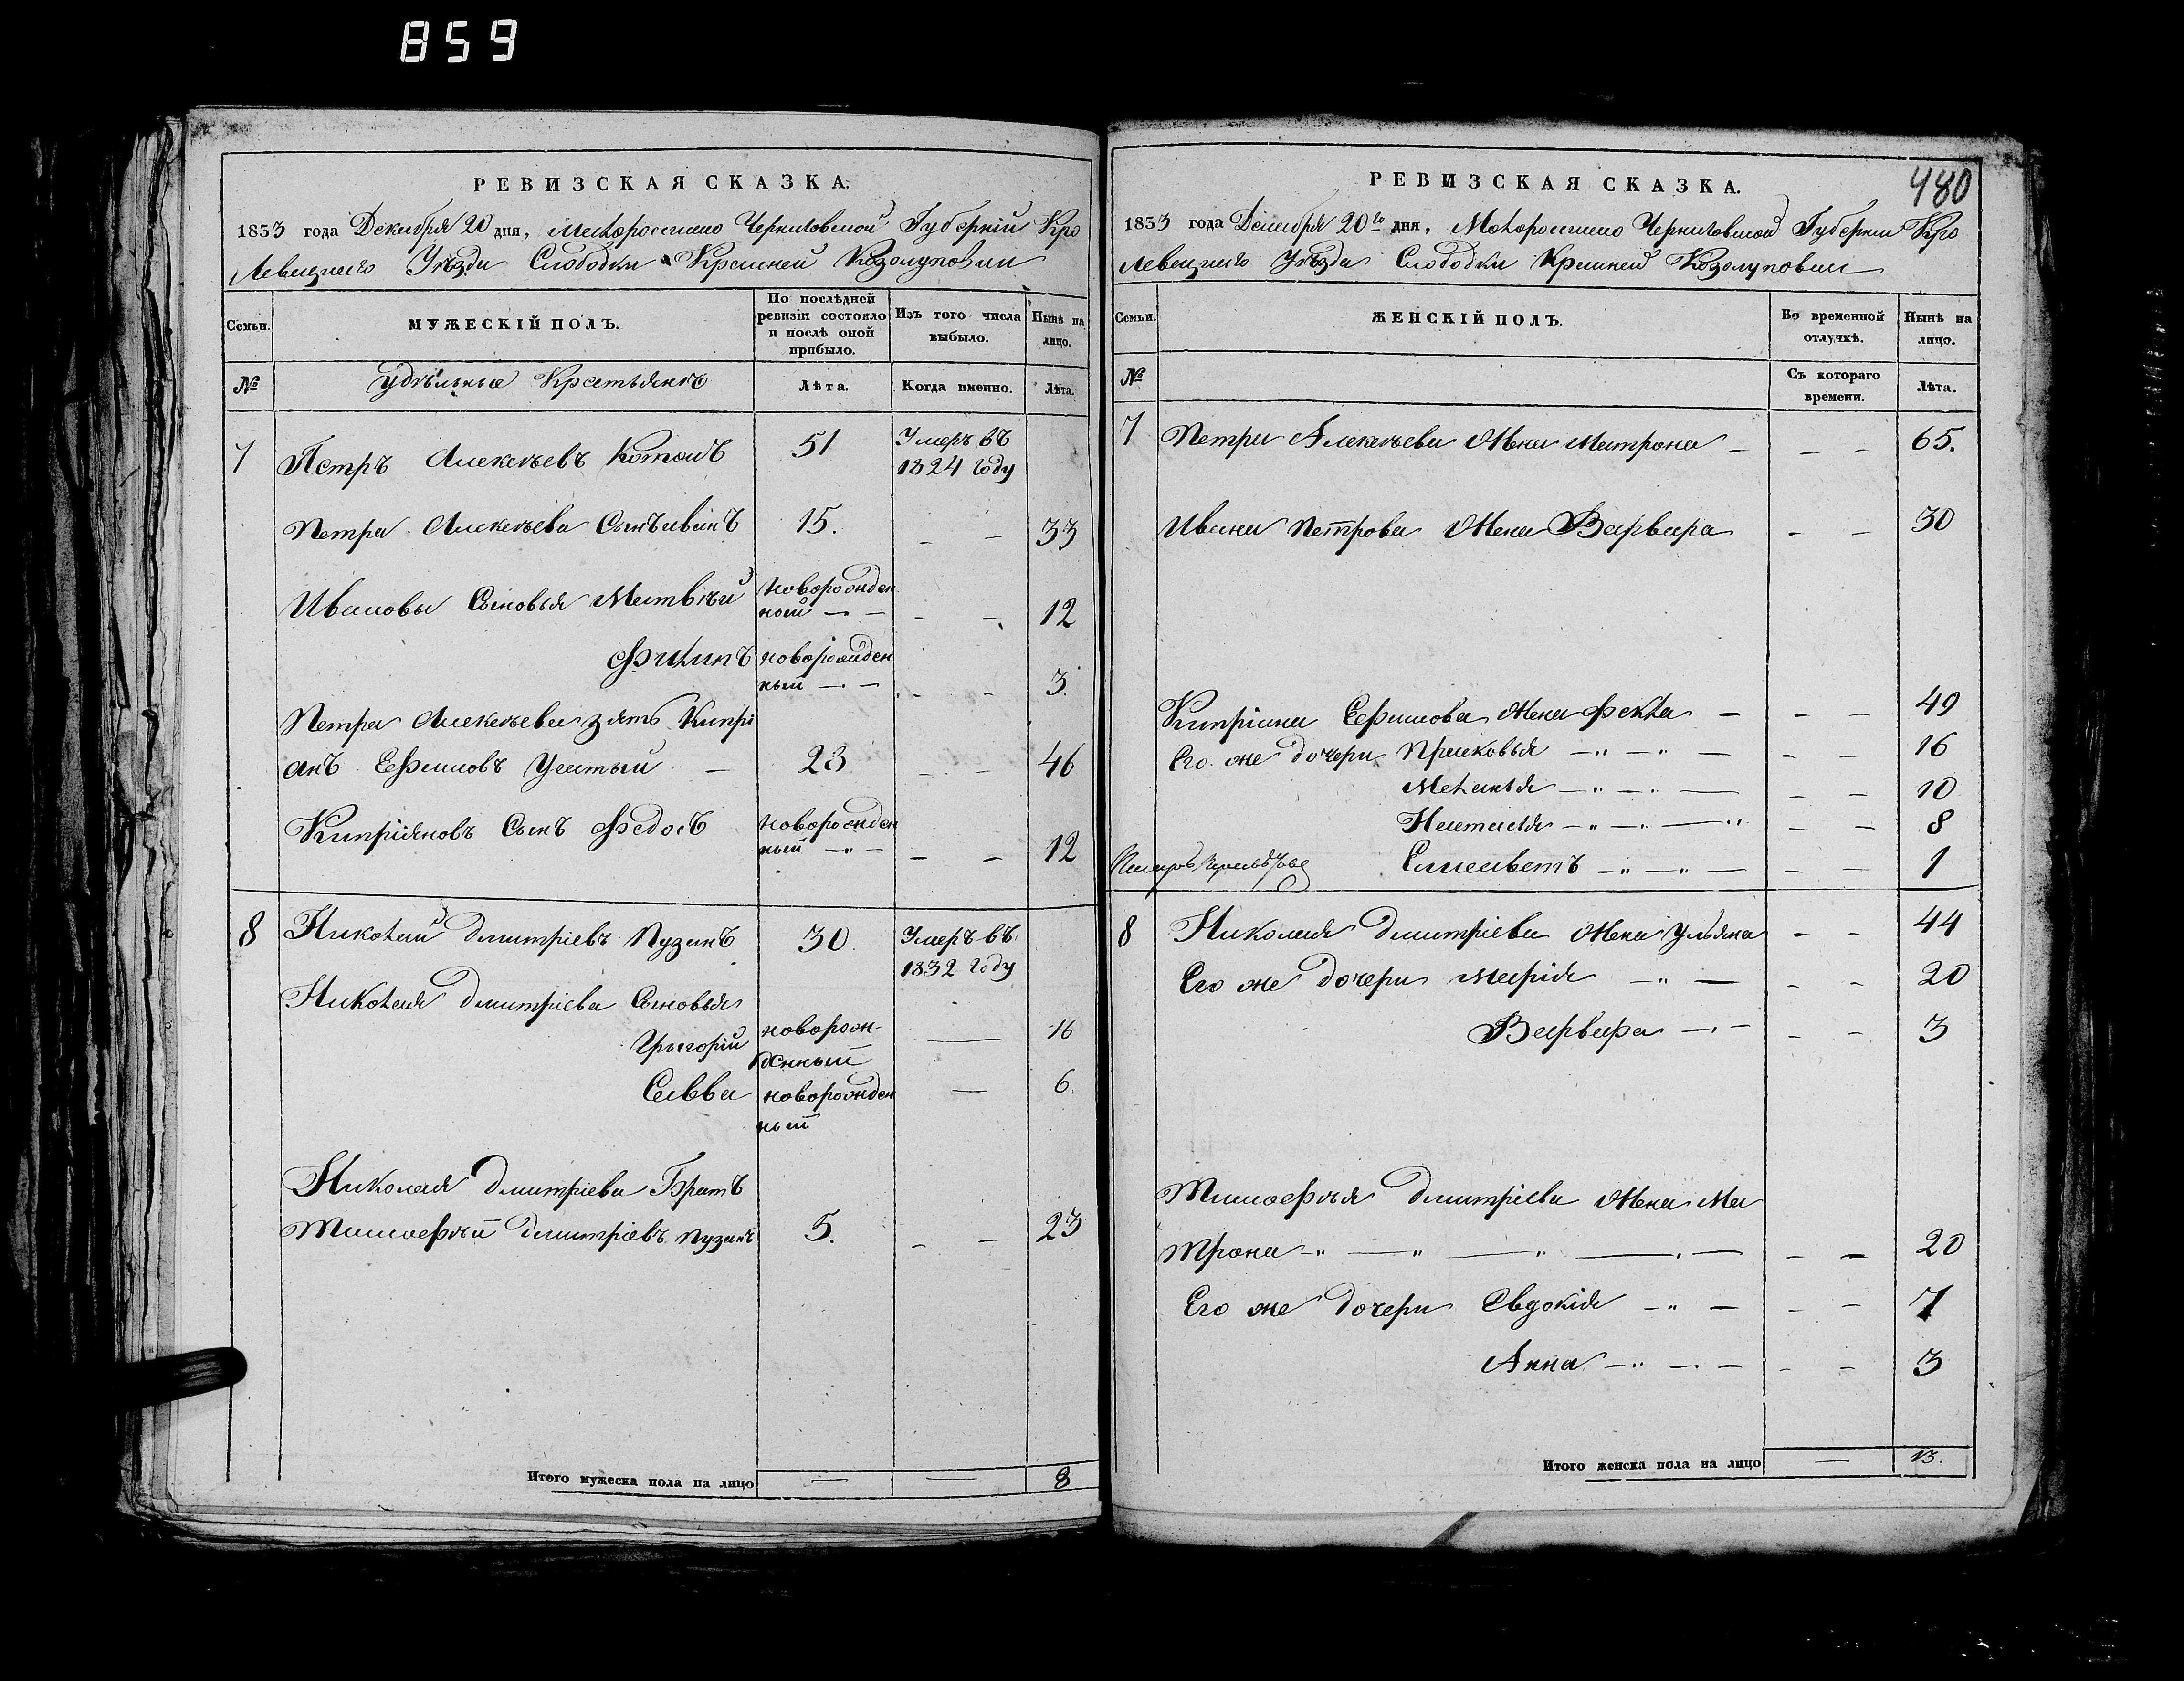 859
РЕВИЗСКАЯ СКАЗКА.
1833 года Декабря 20 дня, Малороссийско Черниговской Губернiи Кро
левецкаго Уѣзда Слободки Крашней Козолуповки
Семьи.
МУЖЕСКIЙ ПОЛЪ.
По послѣдней ревизiи состояло и послѣ оной прибыло.
Изъ того числа выбыло.
Нынѣ на лицо.
№
Удѣльные Крестьянѣ
Лѣта.
Когда именно.
Лѣта.
7 Петръ Алексѣевъ 51 Умеръ въ
1824 году
Петра Алексѣева Сынъ Иванъ 15. – – 33
Ивановы Сыновья Матвѣй новорожден
ный – – – – 12
Филипъ новорожден
ный – – – – 3.
Петра Алексѣева зять Кипрi
анъ Ефимовъ – 23 – – 46
Кипрiяновъ Сынъ Федосъ новорожден
ный – – – – 12
8 Николай Дмитрiевъ Пузанъ 30. Умеръ въ
1832 году
Николая Дмитрiева Сыновья
Григорiй новорож-
денный — 16
Савва новорожден
ный — 6.
Николая Дмитрiева Братъ
Тимофѣй Дмитрiевъ Пузанъ 5. – – 23
Итого мужеска пола на лицо — — 8
480
РЕВИЗСКАЯ СКАЗКА.
1833 года Декабря 20го дня, Малороссийско Черниговской Губернiи Кро
левецкаго Уѣзда Слободки Крашней Козолуповки
Семьи.
ЖЕНСКIЙ ПОЛЪ.
Во временной отлучкѣ.
Нынѣ на лицо.
№
Съ котораго времени.
Лѣта.
7 Петра Алексѣева Жена Матрона – – – 65.
Ивана Петрова Жена Варвара – – 30
Кипрiана Ефимова Жена Фекла – – – 49
Его же дочери Прасковья – – – 16
Меланья – – – 10
Настасья – – – 8
Елисаветъ – – – 1
8 Николая Дмитрiева Жена Ульяна – – 44
Его же дочери Марiя – – – 20
Варвара – – – 3
Тимофѣя Дмитрiева Жена Ма
трона – – – – 20
Его же дочери Евдокiя – – – 7
Анна – – – 3
Итого женска пола на лицо — 13.